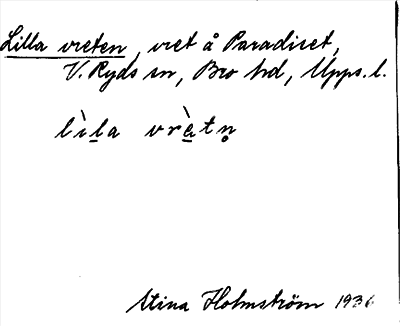 Lilla vreten, vret å Paradiset,
V. Ryds sn, Bro hd, Upps. l.
lìla vrètn̥
Stina Holmström 1936